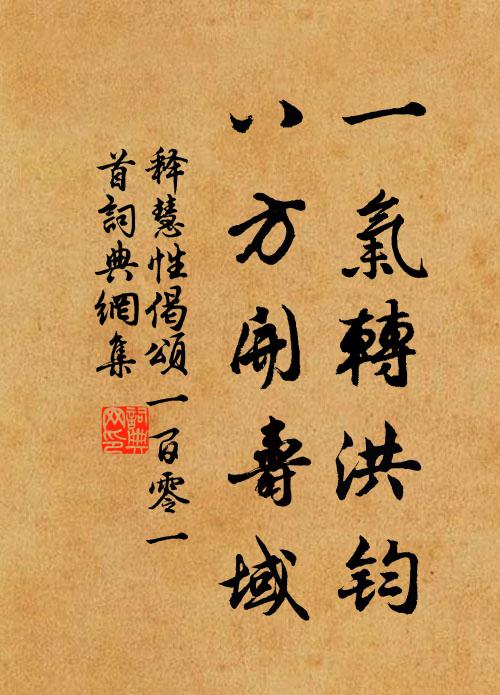 一氣轉洪鈞
八方開壽域
释慧性偈頌一百零一
首詞典網集
詞典网印